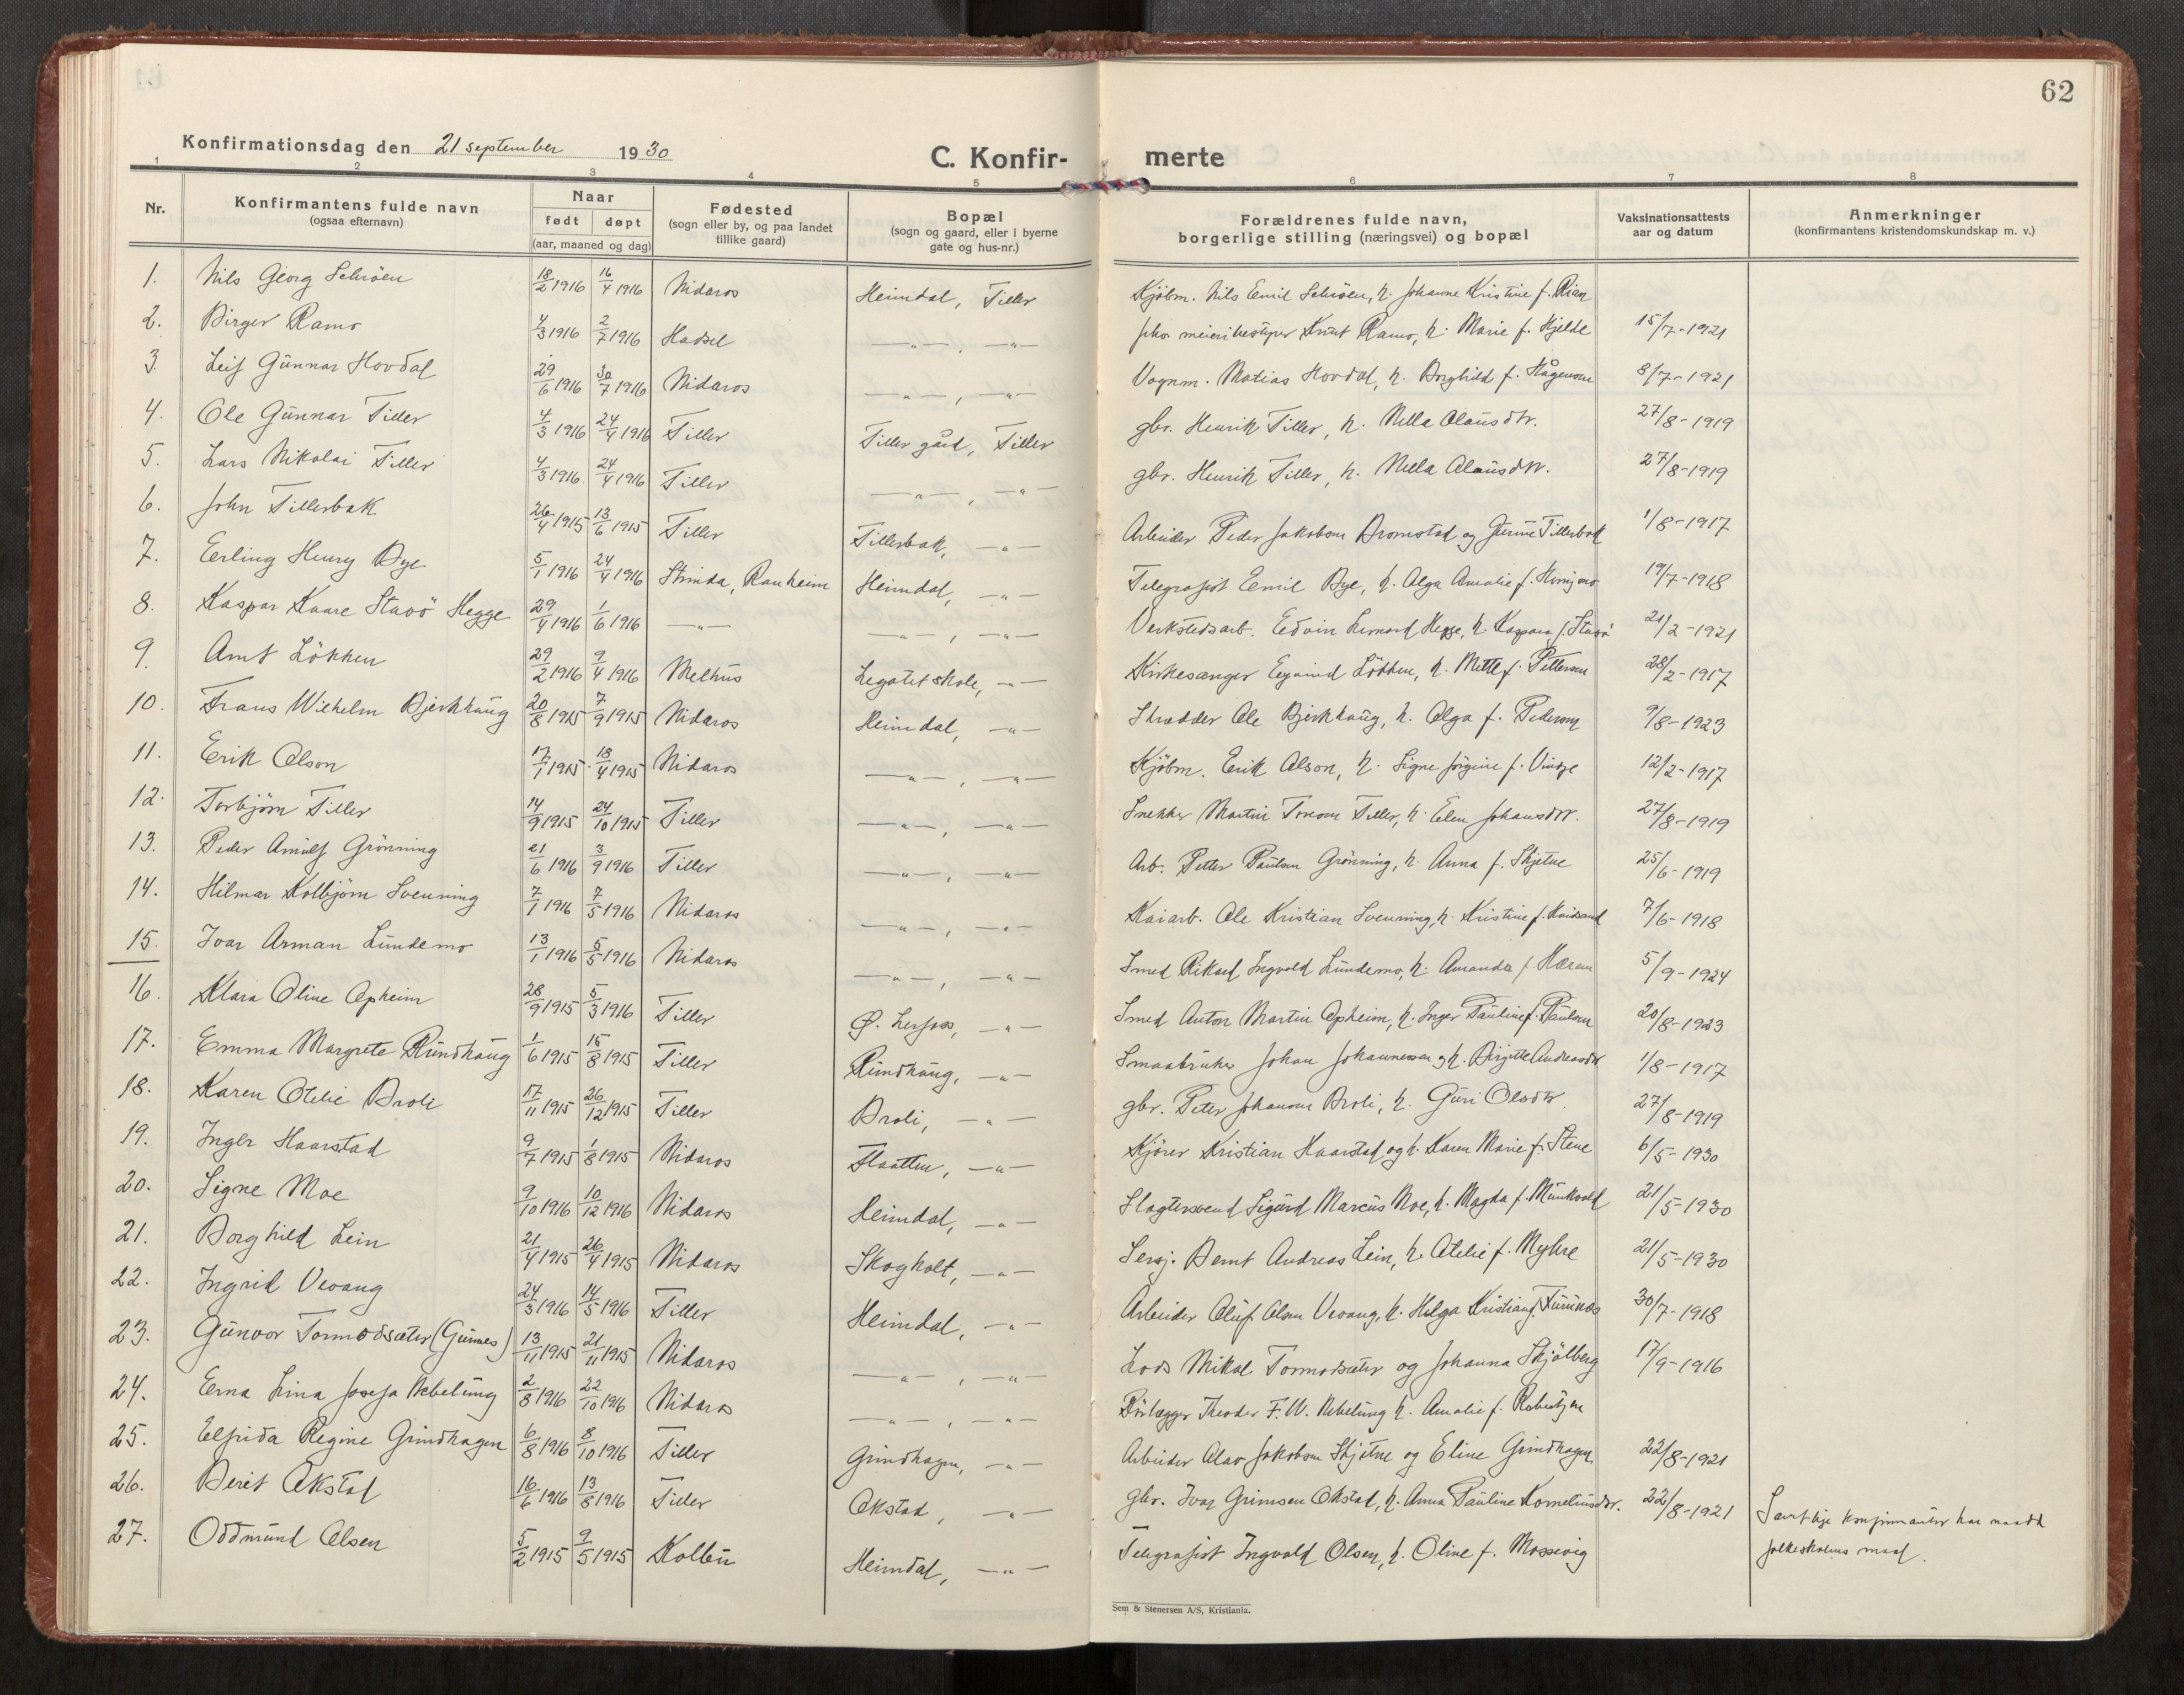 62
Konfirmationsdag den 21 september 1930
C. Konfir- merte
1 2 3 4 5 6 7 8
Nr. Konfirmantens fulde navn (ogsaa efternavn) Naar født døpt (aar, maaned og dag) Fødested (sogn eller by, og paa landet tillike gaard) Bopæl (sogn og gaard, eller i byerne gate og hus-nr.) Forældrenes fulde navn, borgerlige stilling (næringsvei) og bopæl Vaksinationsattests aar og datum Anmerkninger (konfirmantens kristendomskundskap m. v.)
1. Nils Georg Schröen 18/2 1916 16/4 1916 Nidaros Heimdal, Tiller Kjöbm. Nils Emil Schröen, h. Johanne Kristine f. Rian
2. Birger Ramo 4/3 1916 2/7 1916 Hadsel —"—, —"— meieribestyrer Knut Ramo, h. Marie f. Hjelde 15/7-1921
3. Leif Gunnar Hovdal 29/6 1916 30/7 1916 Nidaros —"—, —"— Vognm. Matias Hovdal, h. Borghild f. Hågensen 8/7-1921
4. Ole Gunnar Tiller 4/3 1916 24/4 1916 Tiller Tiller gård, Tiller gbr. Henrik Tiller, h. Nella Olausdtr. 27/8-1919
5. Lars Nikolai Tiller 4/3 1916 24/4 1916 Tiller —"—, —"— gbr. Henrik Tiller, h. Nella Olausdtr. 27/8-1919
6. John Tillerbak 26/4 1915 13/6 1915 Tiller Tillerbak, —"— Arbeider Peder Jakobsen Bromstad og Gurine Tillerbak 1/8-1917
7. Erling Henry Bye 5/1 1916 24/4 1916 Strinda, Ranheim Heimdal, —"— Telegrafist Emil Bye, h. Olga Amalie f. 19/7-1918
8. Kaspar Kaare Stavö Hegge 29/4 1916 1/6 1916 —"— —"—, —"— Verkstedsarb. Edvin Lernard Hegge, h. Kaspara f. Stavö 21/2-1921
9. Arnt Lökken 29/2 1916 9/4 1916 Melhus Legatet skole, —"— Kirkesanger Eyvind Lökken, h. Mette f. Pettersen 28/2-1917
10. Frans Wilhelm Bjerkhaug 20/8 1915 7/9 1915 Nidaros Heimdal, —"— Skredder Ole Bjerkhaug, h. Olga f. Pedersen 9/8-1923
11. Erik Olson 17/1 1915 18/4 1915 Nidaros —"—, —"— Kjöbm. Erik Olson, h. Signe Jörgine f. Vinge 12/2-1917
12. Torbjörn Tiller 14/9 1915 24/10 1915 Tiller —"—, —"— Snekker Martin Tiller, h. Elen Johansdtr. 27/8-1919
13. Peder Arnulf Grönning 21/6 1916 3/9 1916 Tiller —"—, —"— Arb. Petter Paulsen Grönning, h. Anna f. Skjetne 25/6-1919
14. Hilmar Kolbjörn Svenning 7/1 1916 7/5 1916 Nidaros —"—, —"— Kaiarb. Ole Kristian Svenning, h. Kristine f. 7/6-1918
15. Ivar Arman Lundemo 13/1 1916 5/5 1916 Nidaros —"—, —"— Smed Rikard Ingvald Lundemo, h. Amanda f. 5/9-1924
16. Klara Oline Opheim 28/9 1915 5/3 1916 Tiller Ø. Lerfoss, —"— Smed Anton Martin Opheim, h. Inger Pauline f. Paulsen 20/8-1923
17. Emma Margrete Rundhaug 1/6 1915 15/8 1915 Tiller Rundhaug, —"— Smaabruker Johan Johannessen og h. Birgitte Andreasdtr 1/8-1917
18. Karen Otelie Broli 17/11 1915 26/12 1915 Tiller Broli, —"— gbr. Peter Johansen Broli, h. Guri Olsdtr. 27/8-1919
19. Inger Haarstad 9/7 1915 1/8 1915 Nidaros Flaatten, —"— Kjörer Kristian Haarstad og h. Karen Marie f. Stene 6/5-1930
20. Signe Moe 9/10 1916 10/12 1916 Nidaros Heimdal, —"— Slagtersvend Sigurd Marcus Moe, h. Magda f. Munkvold 21/5-1930
21. Borghild Lein 21/4 1915 26/4 1915 Nidaros Skogholt, —"— Sersj. Bernt Andreas Lein, h. Otelie f. Myhre 21/5-1930
22. Ingrid Vevang 24/3 1916 14/5 1916 Tiller Heimdal, —"— Arbeider Oluf Olsen Vevang, h. Helga Kristiane f. Furunes 30/7-1918
23. Gunvor Tormodsæter (Gunnes) 13/11 1915 21/11 1915 Nidaros —"—, —"— Lods Mikal Tormodsæter og Johanna Skjölberg 17/9-1916
24. Erna Lina Josefa Nebelung 2/8 1916 22/10 1916 Nidaros —"—, —"— Theodor F. W. Nebelung h. Amalie f.
25. Elfrida Regine Grindhagen 6/8 1916 8/10 1916 Tiller Grindhagen, —"— Arbeider Olav Jakobsen Skjetne og Eline Grindhagen 22/8-1921
26. Berit Okstad 16/6 1916 13/8 1916 Tiller Okstad, —"— gbr. Ivar Grimsen Okstad, h. Anna Pauline Korneliusdtr. 22/8-1921 Samtlige konfirmanter har naadd
27. Oddmund Olsen 5/2 1915 9/5 1915 Kolbu Heimdal, —"— Telegrafist Ingvald Olsen, h. Oline f. Mossevig folkeskolens maal.
Sem & Stenersen A/S, Kristiania.